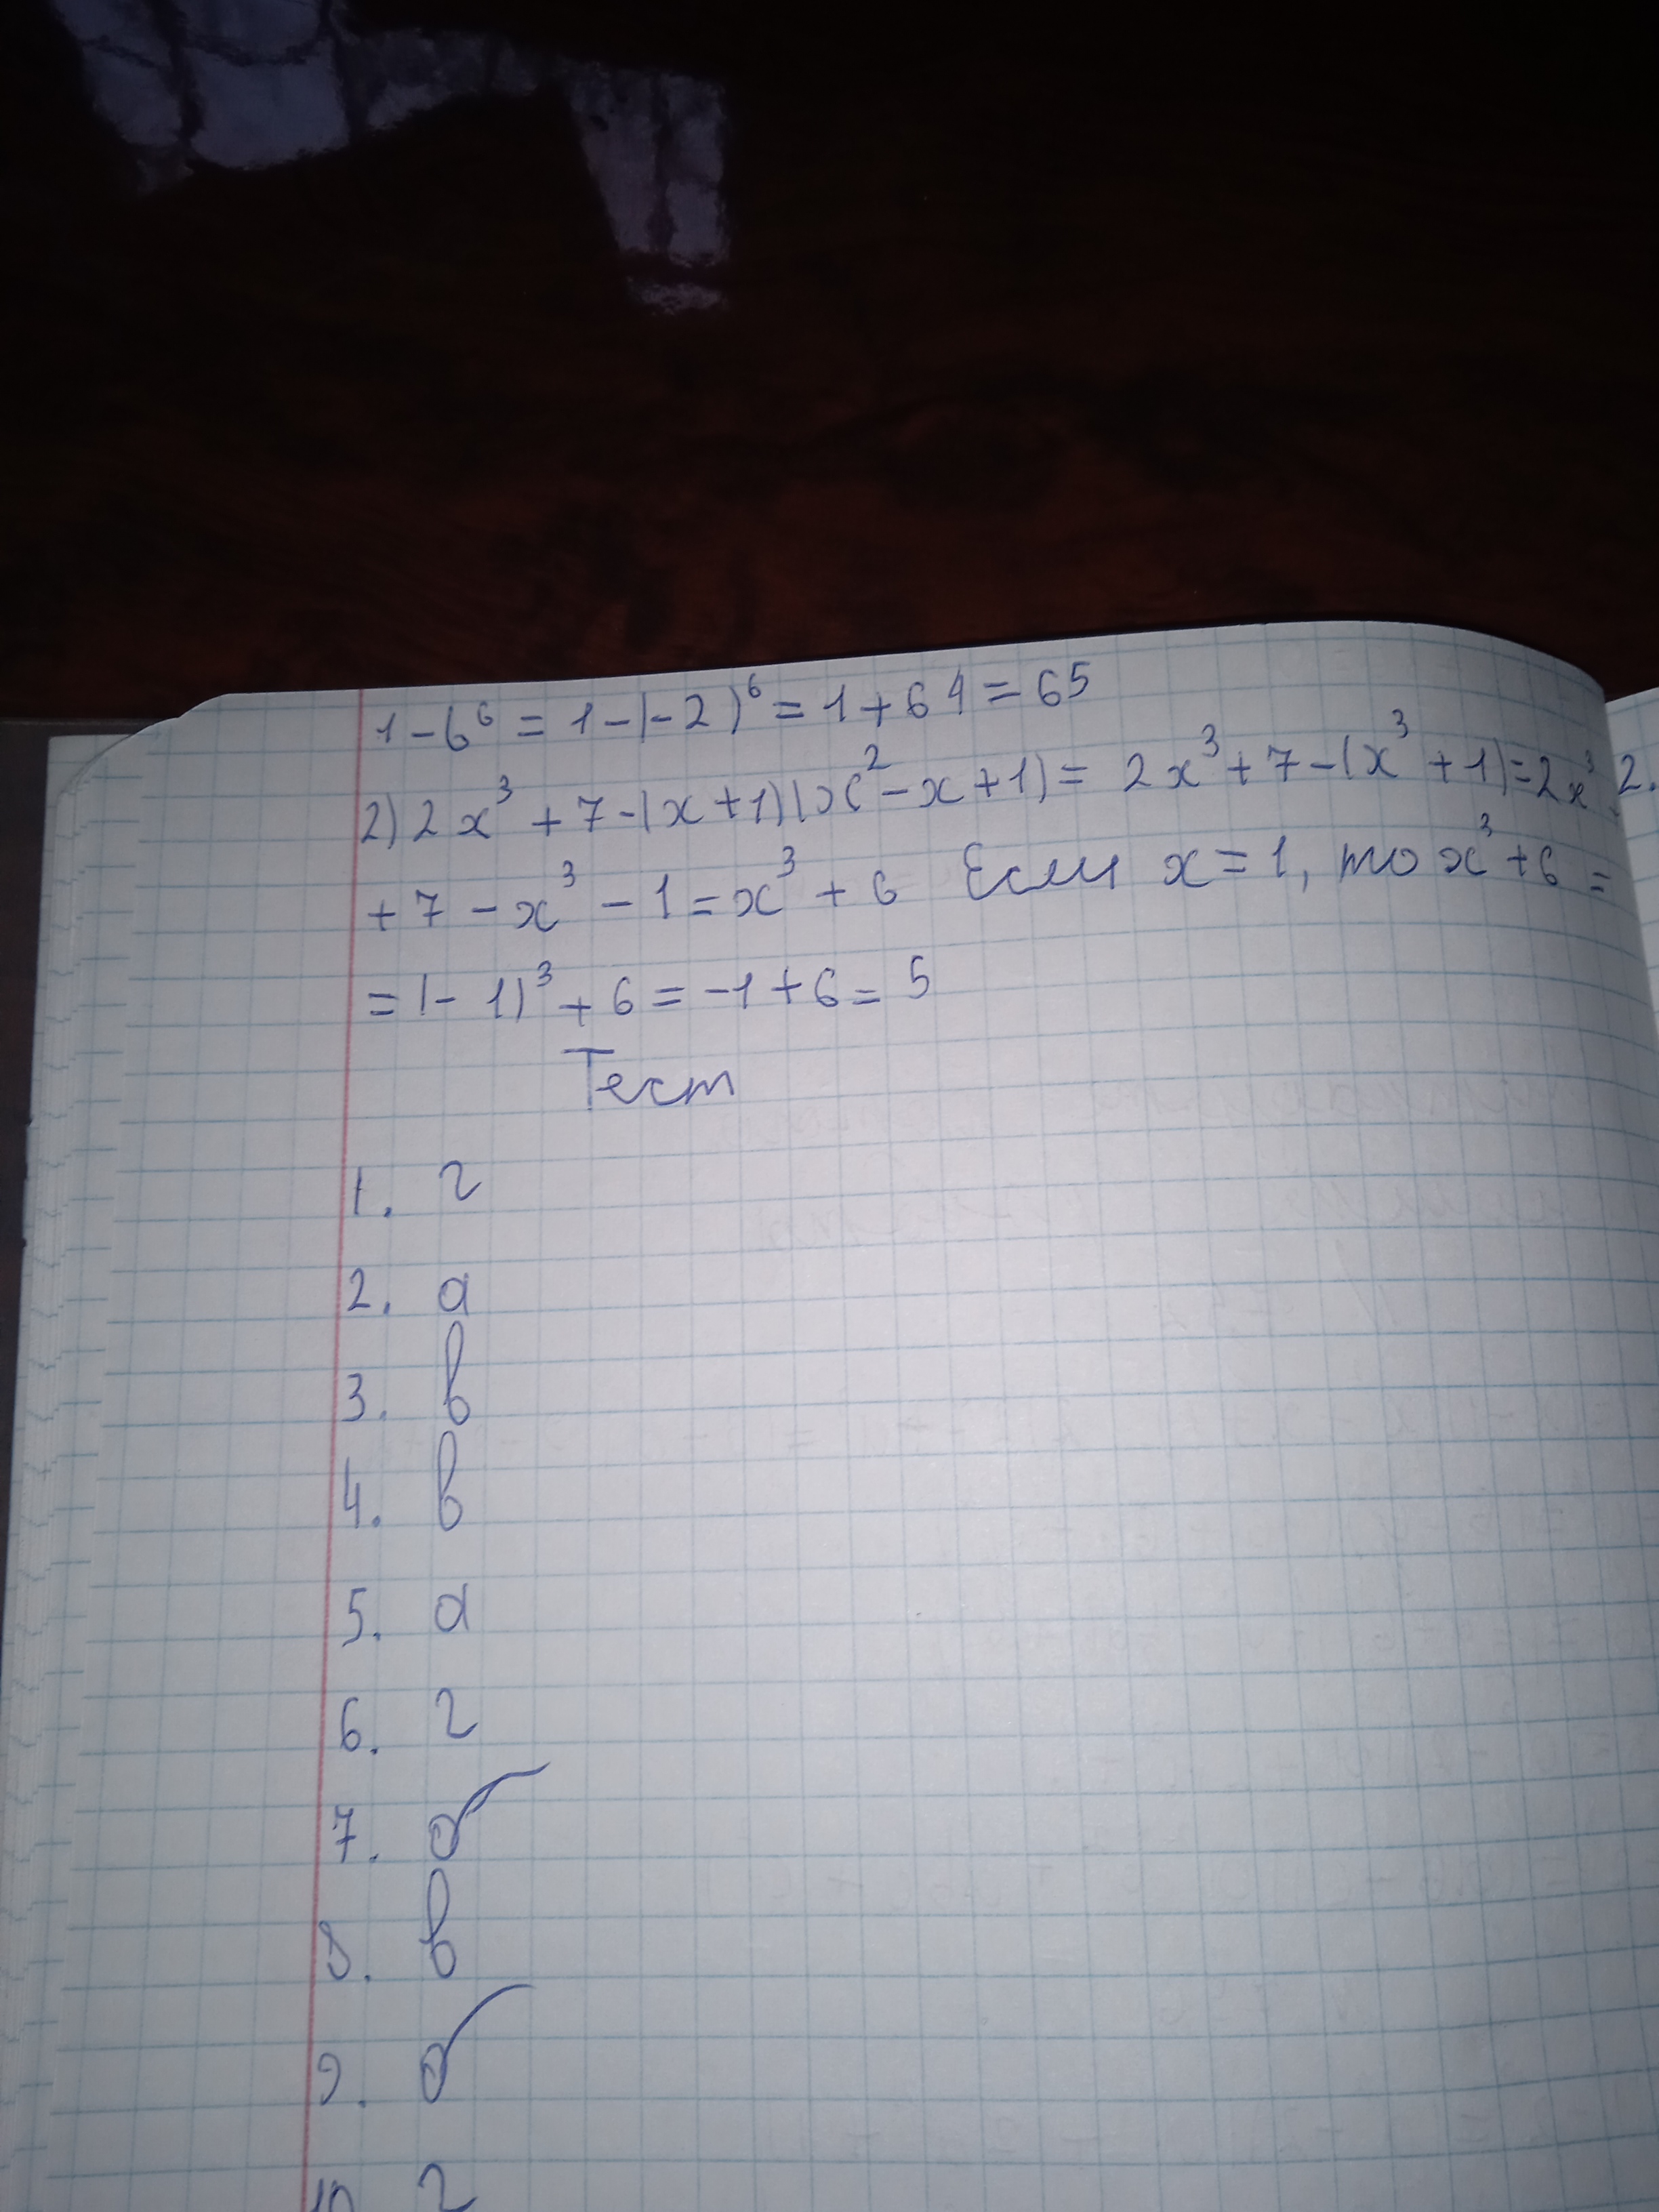 1-b⁶ = 1-(-2)⁶ = 1+64 = 65
2) 2x³ + 7-(x+1)(x²-x+1) = 2x³+7-(x³+1)=2x³
2.
+7-x³-1=x³+6 Если x=1, то x³+6 =
= (-1)³ + 6 = -1+6 = 5
Тест
1. г
2. а
3. в
4. в
5. а
6. г
7. б
8. в
9. б
10 г